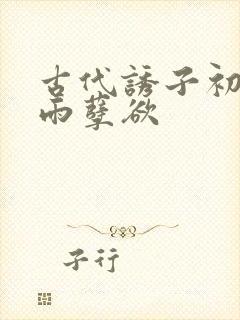 古代诱子初
雨孽欲
子行